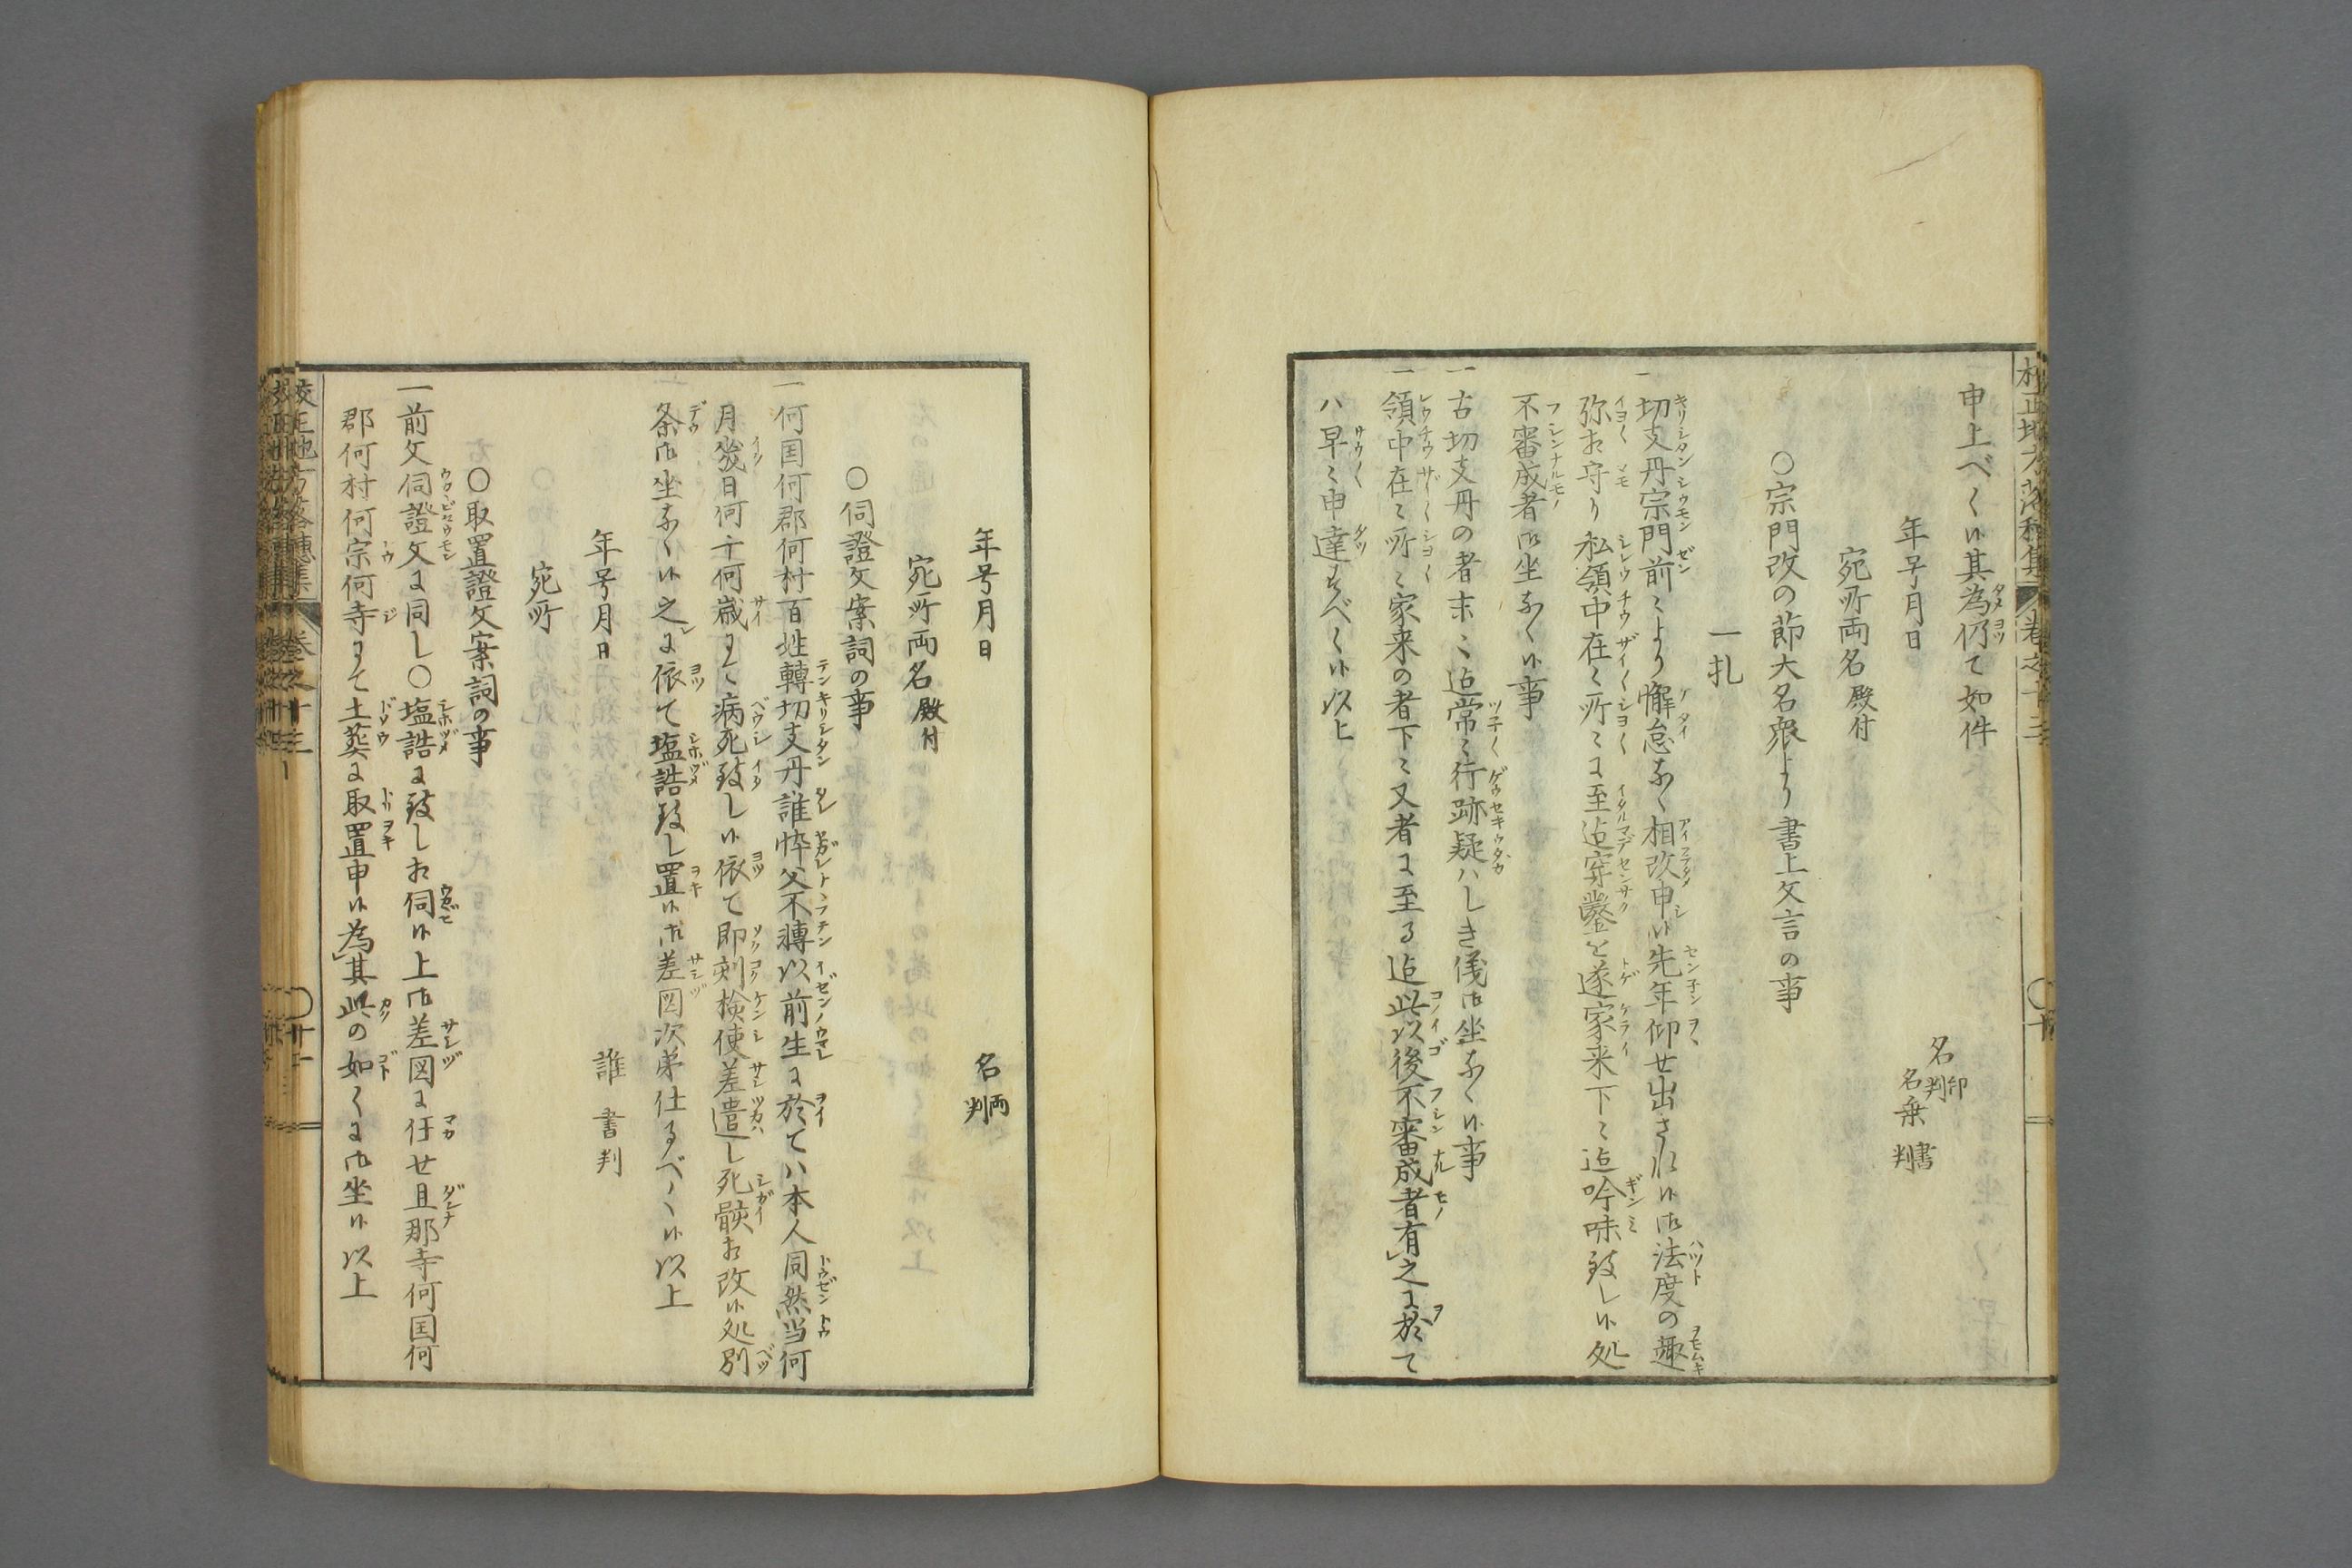 申上べく候其為仍て如件
年号月日
名印判
名乗書判
宛所両名殿付
○宗門改の節大名衆より書上文言の事
一札
一切支丹宗門前々より懈怠なく相改申候先年仰せ出され候御法度の趣
弥お守り私領中在々所々に至迄穿鑿を遂家来下々迄吟味致し候処
不審成者御坐なく候事
一古切支丹の者末々迄常々行跡疑ハしき儀御坐なく候事
一領中在々所々家来の者下々又者に至る迄此以後不審成者有之に於て
ハ早々申達すべく候以上
年号月日
名両判
宛所両名殿付
○伺證文案詞の事
一何国何郡何村百姓轉切支丹誰忰父不轉以前生に於てハ本人同然当何
月幾日何十何歳にて病死致し候依て即刻検使差遣し死骸お改候処別
条御坐なく候之に依て塩詰致し置候御差図次第仕るべく候以上
年号月日
誰書判
宛所
○取置證文案詞の事
一前文伺證文に同し○塩詰に致しお伺候上御差図に任せ旦那寺何国何
郡何村何宗何寺にて土葬に取置申候為其此の如くに御坐候以上
校正地方落穂集
巻之十三